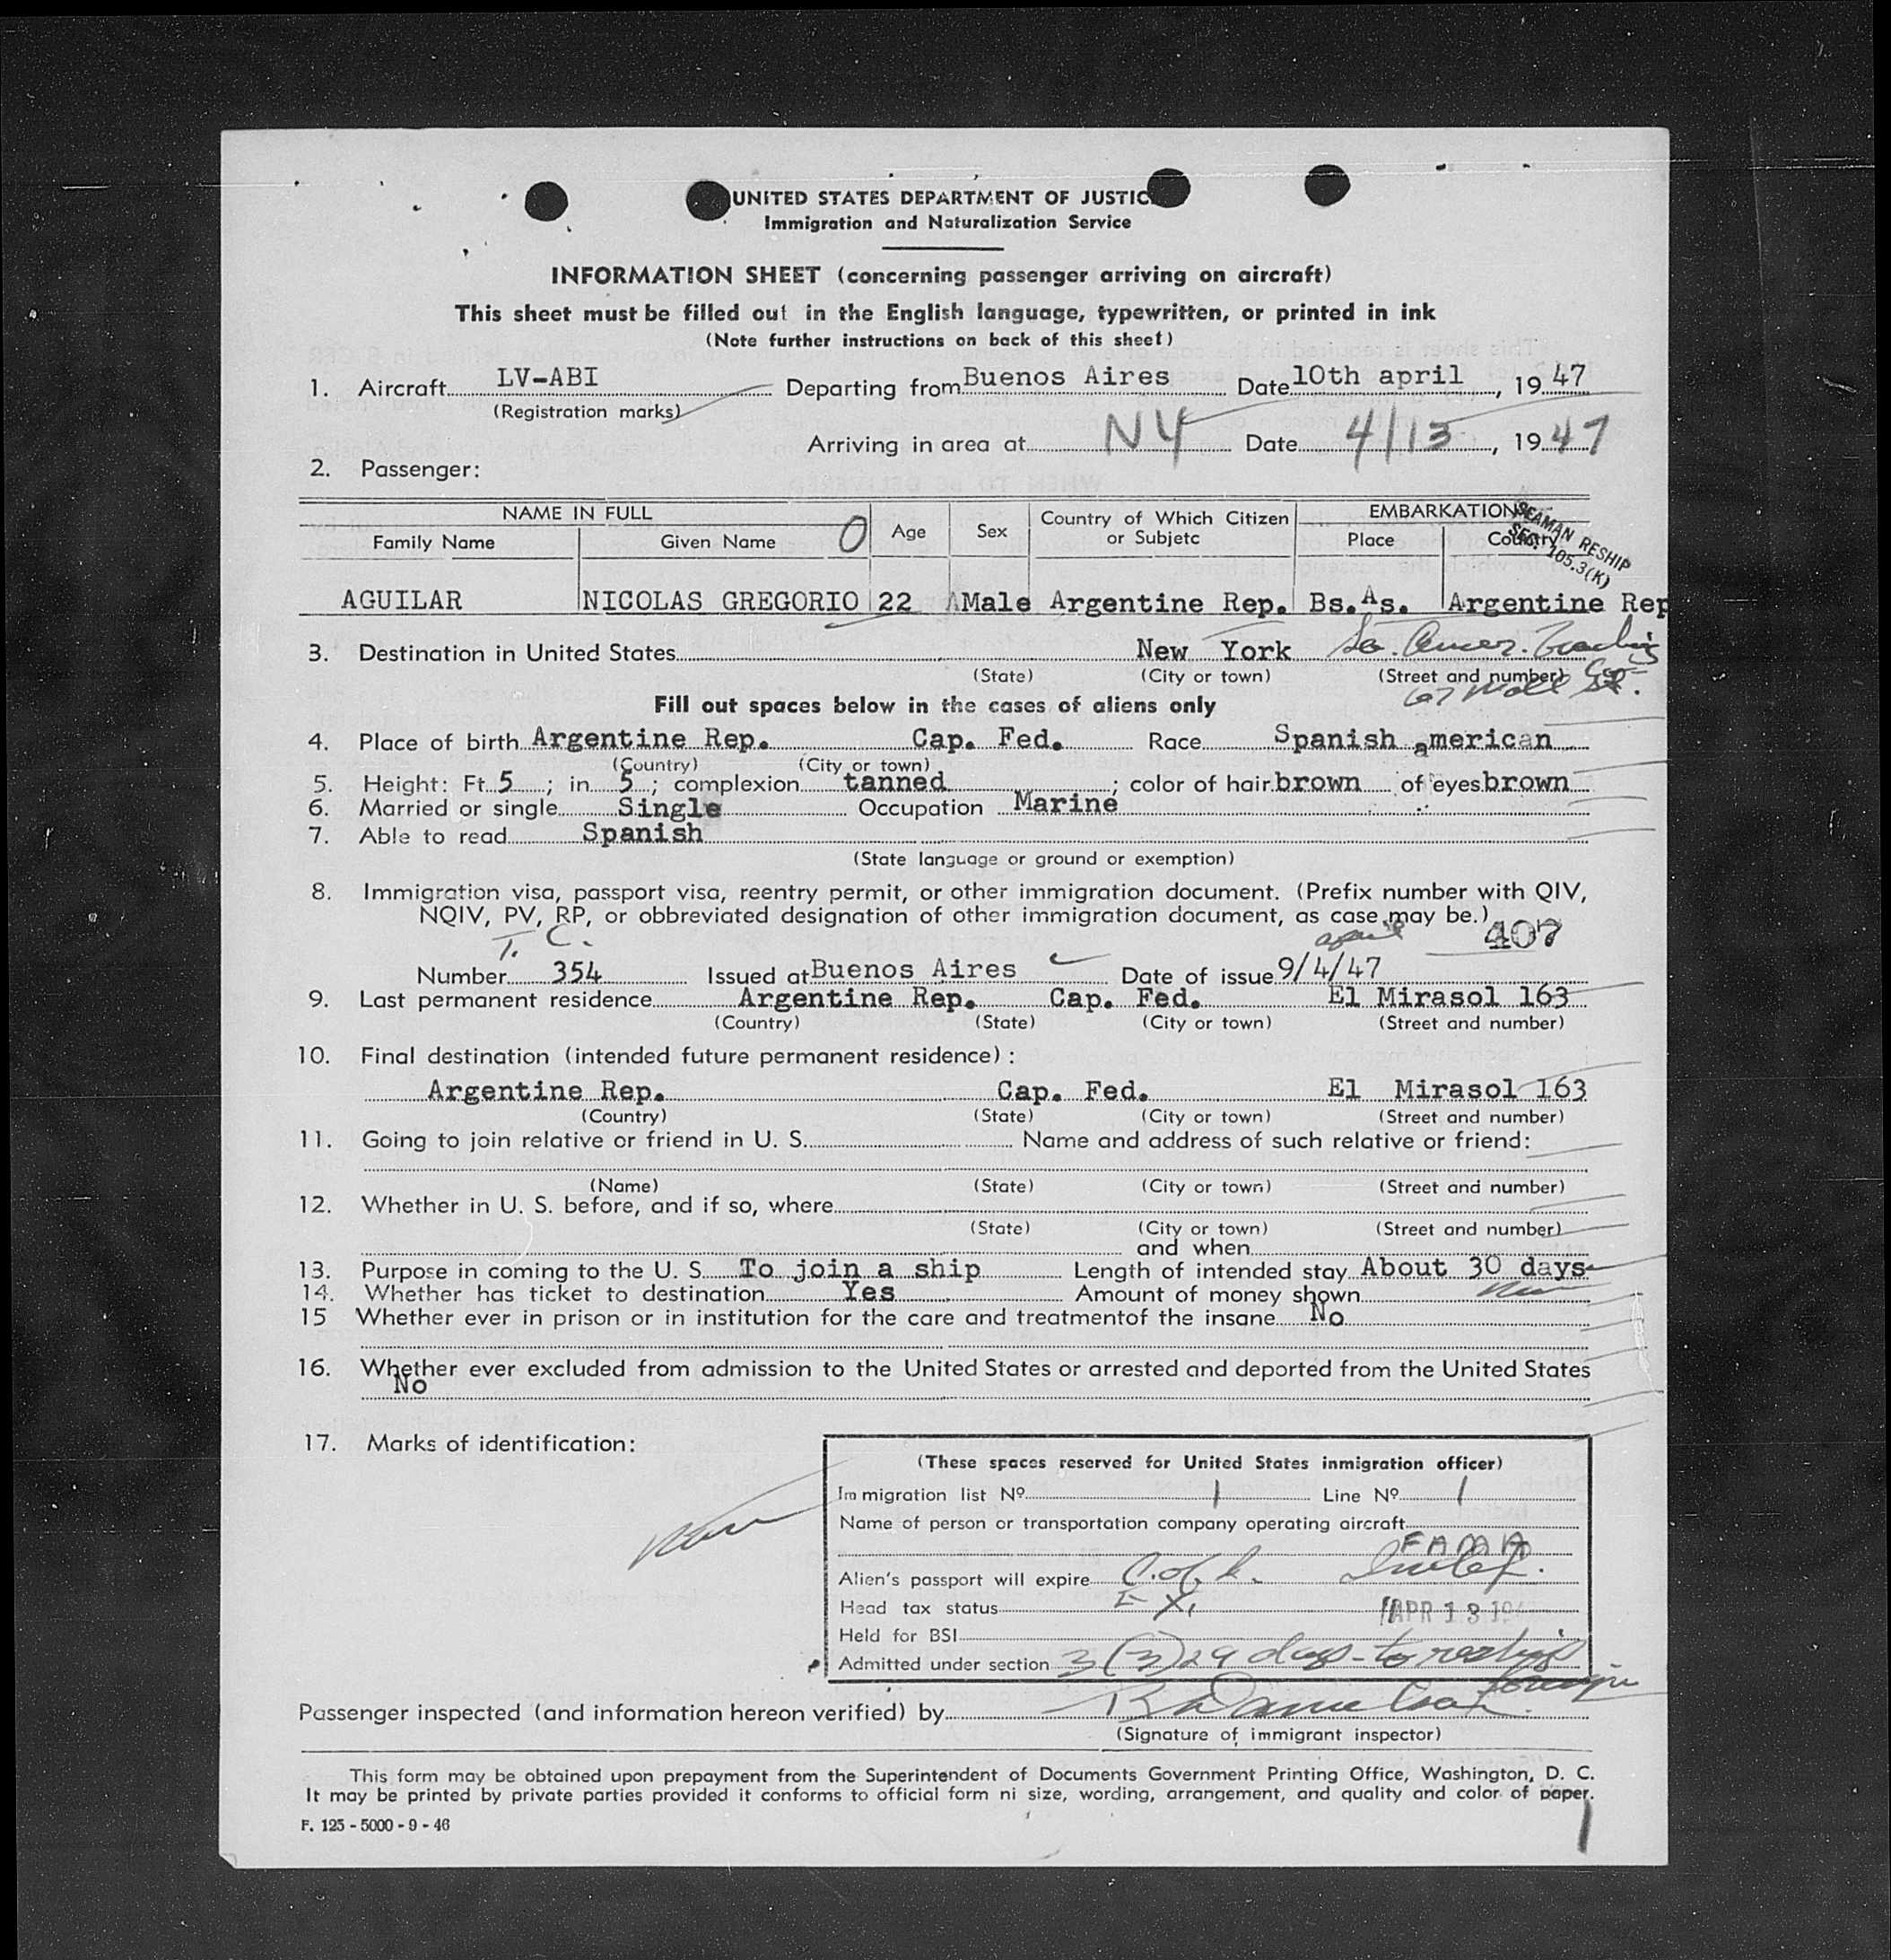 UNITED STATES DEPARTMENT OF JUSTIC
Immigration and Naturalization Service
INFORMATION SHEET (concerning passenger arriving on aircraft)
This sheet must be filled out in the English language, typewritten, or printed in ink
(Note further instructions on back of this sheet)
1. Aircraft LV-ABI Departing from Buenos Aires Date 10th april, 19 47
(Registration marks)
Arriving in area at NY Date 4/13, 19 47
2. Passenger:
NAME IN FULL O Age Sex Country of Which Citizen or Subjetc EMBARKATION
Family Name Given Name Place Country
SEAMAN RESHIP
SEC. 105.3(K)
AGUILAR NICOLAS GREGORIO 22 Male Argentine Rep. Bs.As. Argentine Rep
3. Destination in United States New York So. Amer. Trading
(State) (City or town) (Street and number)
67 Wall St.
Fill out spaces below in the cases of aliens only
4. Place of birth Argentine Rep. Cap. Fed. Race Spanish american
(Country) (City or town)
5. Height: Ft. 5; in 5; complexion tanned; color of hair brown of eyes brown
6. Married or single Single Occupation Marine
7. Able to read Spanish
(State language or ground or exemption)
8. Immigration visa, passport visa, reentry permit, or other immigration document. (Prefix number with QIV,
NQIV, PV, RP, or obbreviated designation of other immigration document, as case may be.)
T. C. april 407
Number 354 Issued at Buenos Aires Date of issue 9/4/47
9. Last permanent residence Argentine Rep. Cap. Fed. El Mirasol 163
(Country) (State) (City or town) (Street and number)
10. Final destination (intended future permanent residence):
Argentine Rep. Cap. Fed. El Mirasol 163
(Country) (State) (City or town) (Street and number)
11. Going to join relative or friend in U. S. Name and address of such relative or friend:
(Name) (State) (City or town) (Street and number)
12. Whether in U. S. before, and if so, where
(State) (City or town) (Street and number)
and when
13. Purpose in coming to the U. S. To join a ship Length of intended stay About 30 days
14. Whether has ticket to destination Yes Amount of money shown
15 Whether ever in prison or in institution for the care and treatmentof the insane No
16. Whether ever excluded from admission to the United States or arrested and deported from the United States
No
17. Marks of identification:
(These spaces reserved for United States inmigration officer)
Immigration list Nº 1 Line Nº 1
Name of person or transportation company operating aircraft
FAMA
Alien's passport will expire
Head tax status Ex. APR 13 194
Held for BSI
Admitted under section 3 (3) 29 days - to reship
foreign
Passenger inspected (and information hereon verified) by
(Signature of immigrant inspector)
This form may be obtained upon prepayment from the Superintendent of Documents Government Printing Office, Washington, D. C.
It may be printed by private parties provided it conforms to official form ni size, wording, arrangement, and quality and color of paper.
F. 125 - 5000 - 9 - 46
1